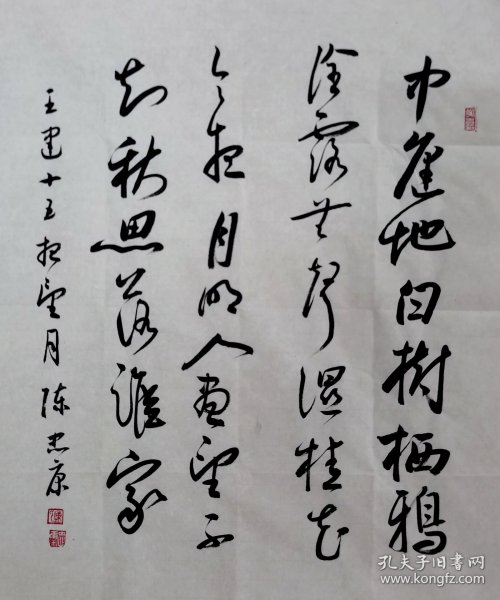 中庭地白樹栖鴉
冷露無聲濕桂花
今夜月明人盡望不
知秋思落誰家
王建十五夜望月 陳忠康
孔夫子旧书网
www.kongfz.com